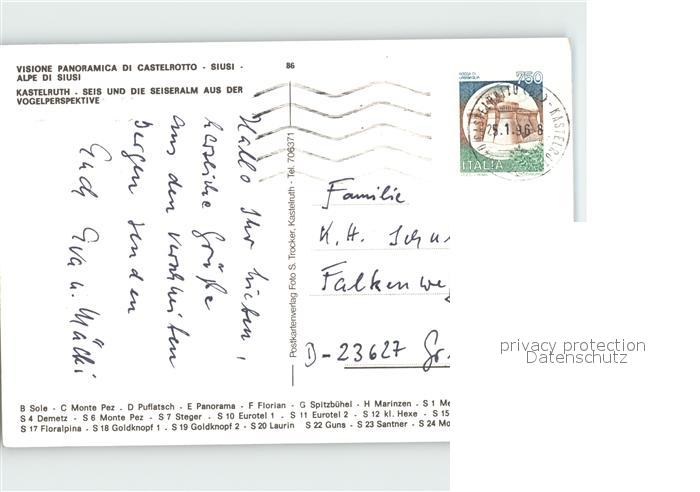 VISIONE PANORAMICA DI CASTELROTTO - SIUSI -
ALPE DI SIUSI
KASTELRUTH - SEIS UND DIE SEISERALM AUS DER
VOGELPERSPEKTIVE
86
Hallo Ihr Lieben,
herzliche Grüße
aus den verschneiten
Bergen senden
Euch Eva u. Mäcki
Postkartenverlag Foto S. Trocker, Kastelruth - Tel. 706371
750
ITALIA
25.1.96 8
Familie
K. H. Schu
Falkenweg
D-23627 Gr.
privacy protection
Datenschutz
B Sole - C Monte Pez - D Puflatsch - E Panorama - F Florian - G Spitzbühel - H Marinzen - S 1 Me
S 4 Demetz - S 6 Monte Pez - S 7 Steger - S 10 Eurotel 1 - S 11 Eurotel 2 - S 12 kl. Hexe - S 15
S 17 Floralpina - S 18 Goldknopf 1 - S 19 Goldknopf 2 - S 20 Laurin S 22 Guns - S 23 Santner - S 24 Mo